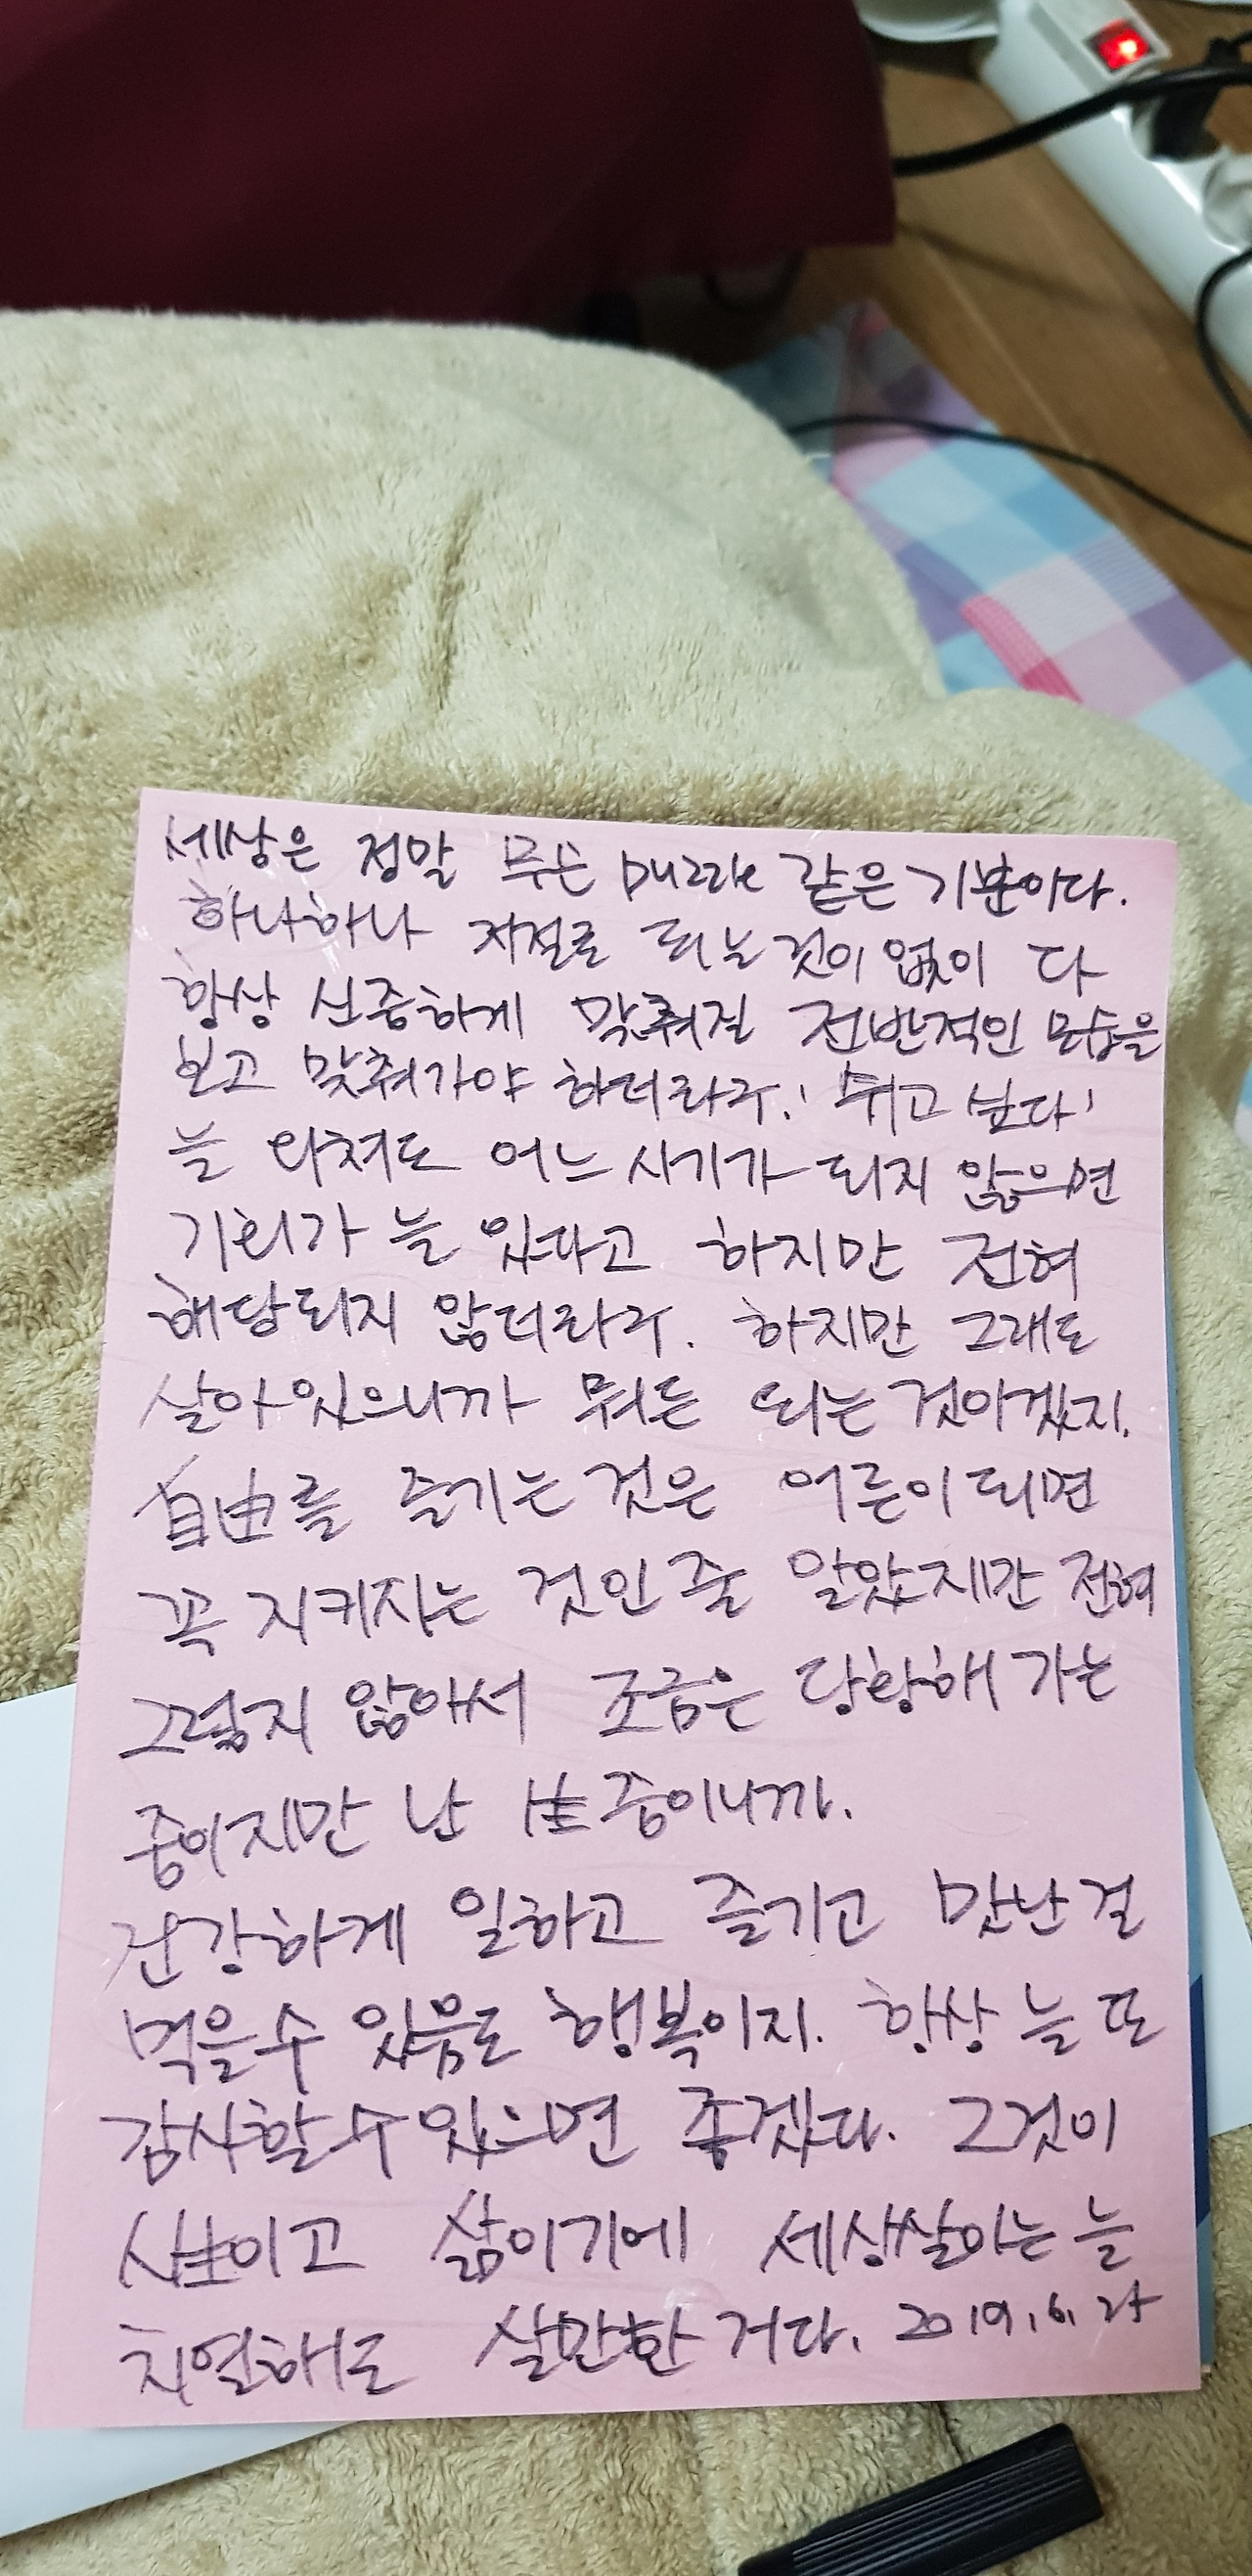 세상은 정말 무슨 puzzle 같은 기분이다.
하나하나 저절로 되는 것이 없이 다
항상 신중하게 맞춰질 전반적인 모습을
보고 맞춰가야 하더라구. '쉬고 싶다'
늘 외쳐도 어느 시기가 되지 않으면
기회가 늘 있다고 하지만 전혀
해당되지 않더라구. 하지만 그래도
살아있으니까 뭐든 되는 것이겠지.
自由를 즐기는 것은 어른이 되면
꼭 지켜지는 것인 줄 알았지만 전혀
그렇지 않아서 조금은 당황해 가는
중이지만 난 生중이니까.
건강하게 일하고 즐기고 맛난 걸
먹을 수 있음도 행복이지. 항상 늘 또
감사할 수 있으면 좋겠다. 그것이
生이고 삶이기에 세상살이는 늘
치열해도 살만한 거다. 2019. 6. 25